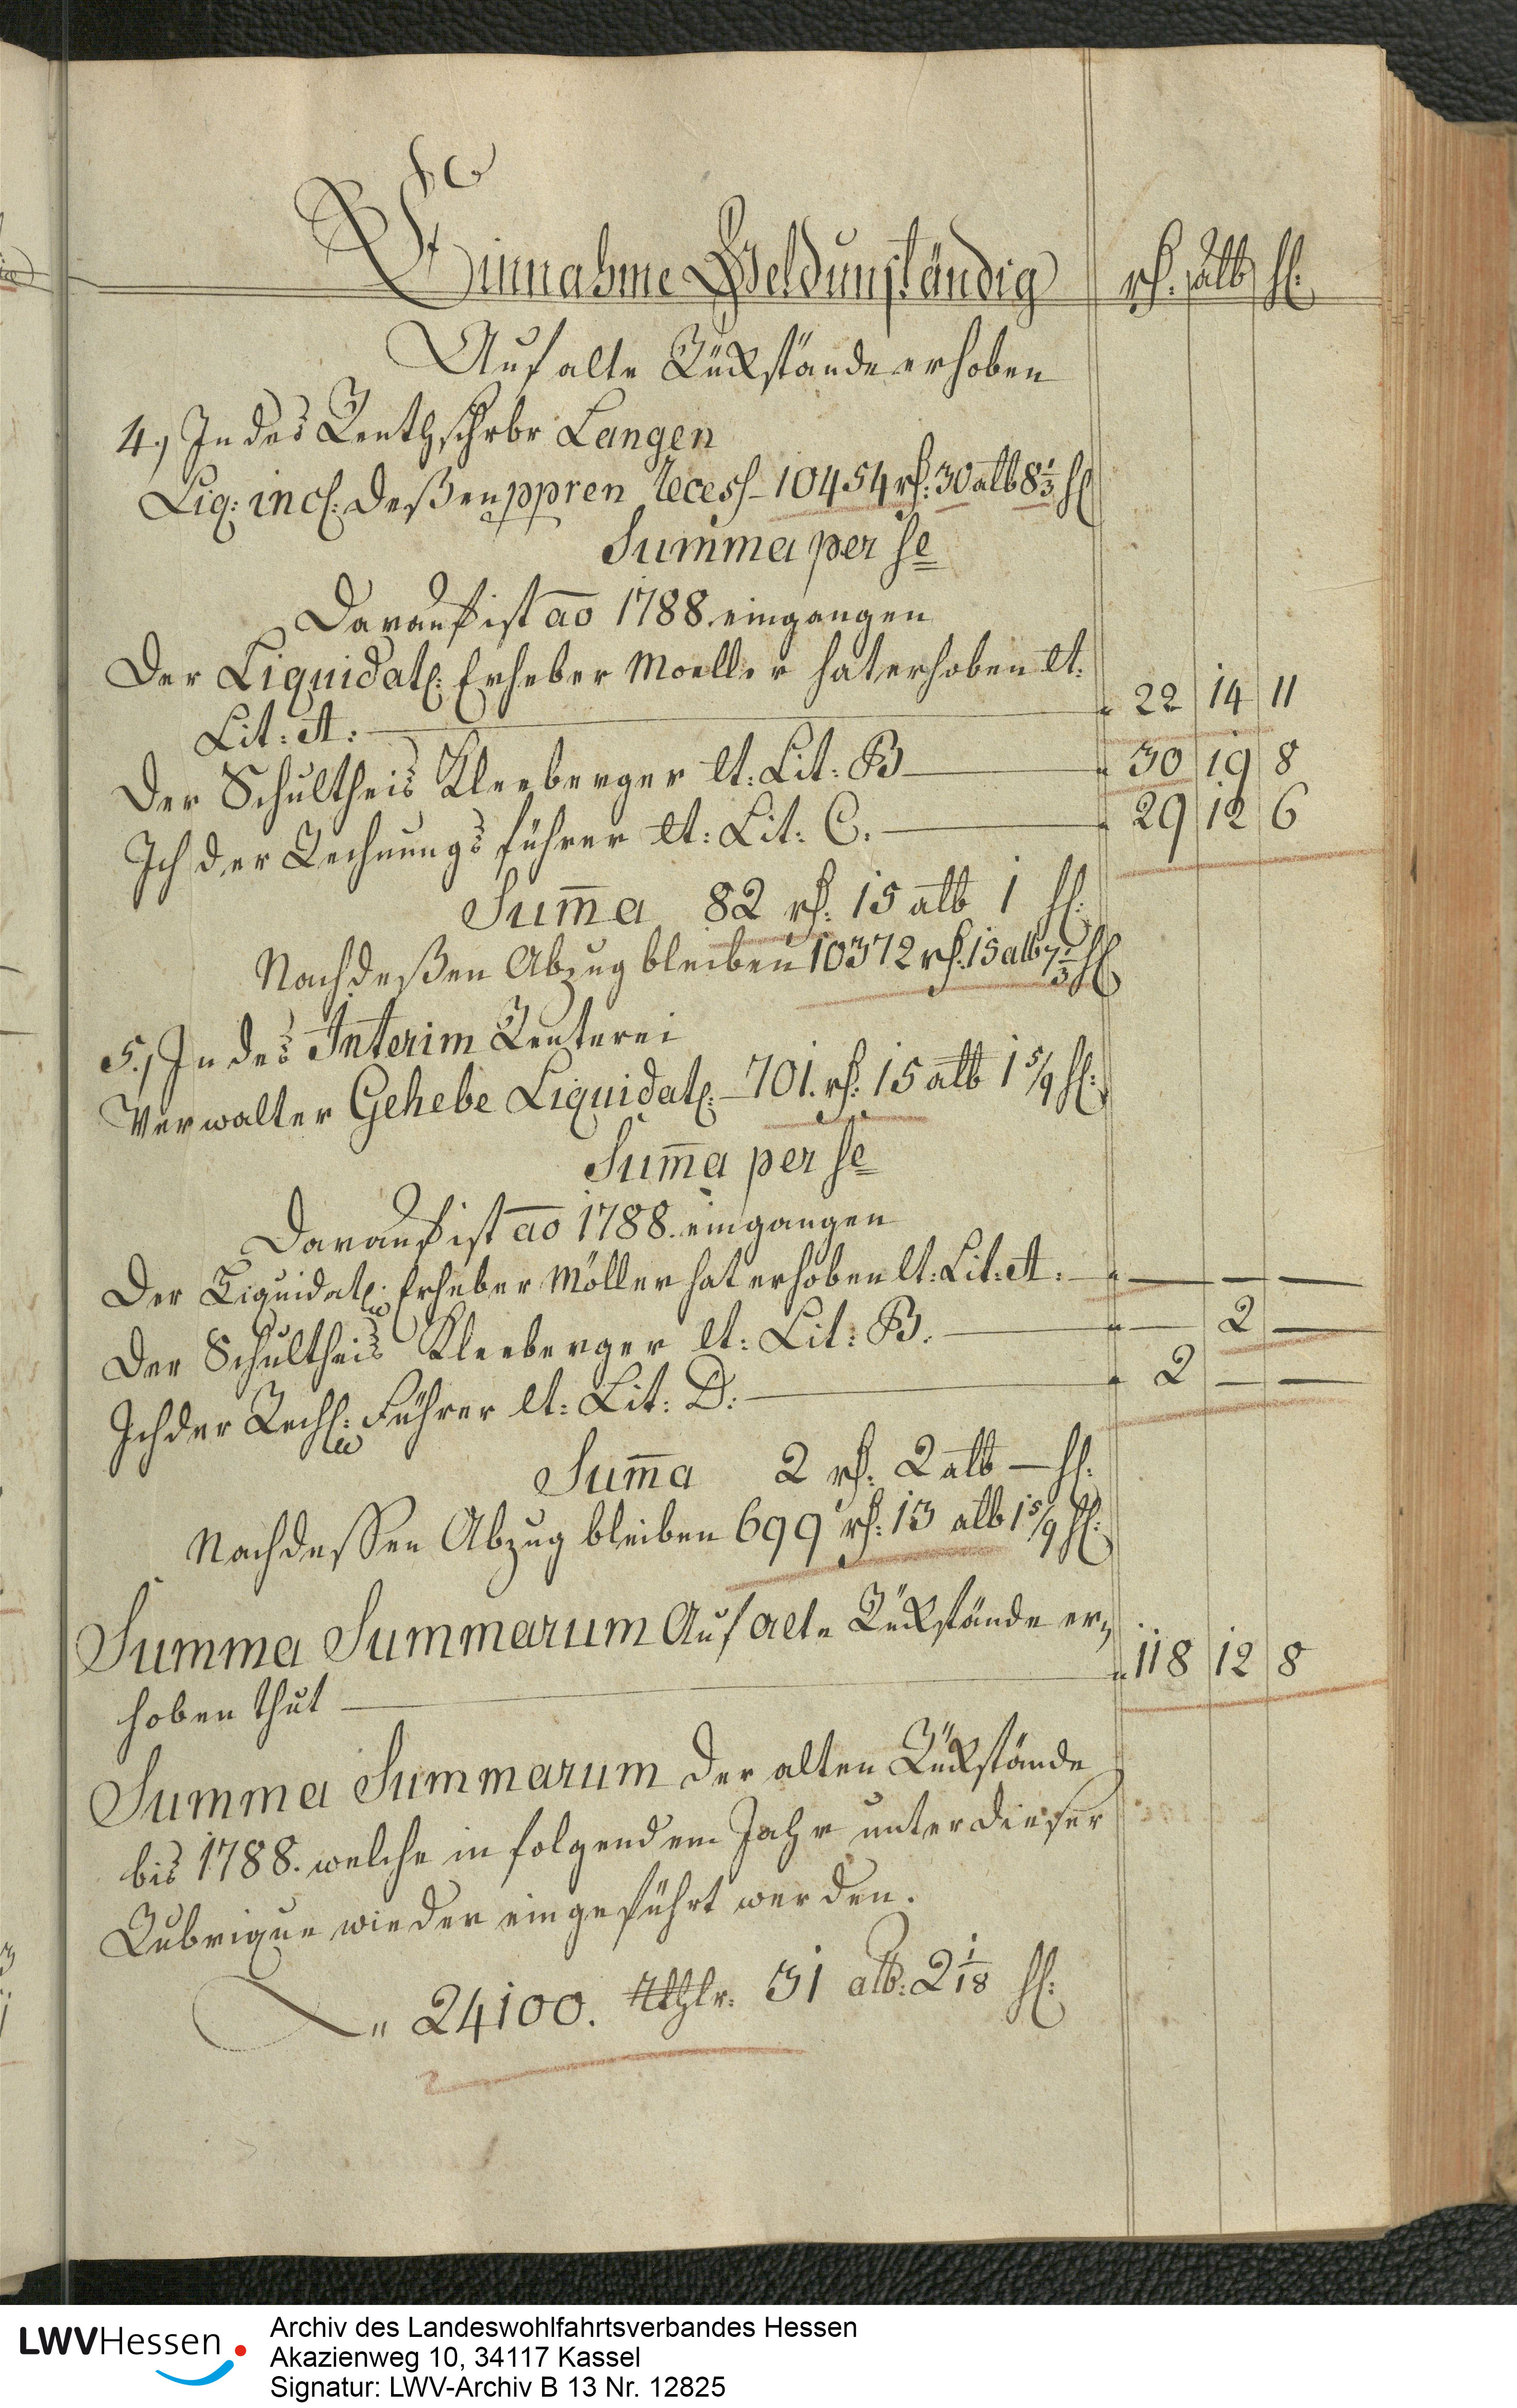 Einnahme Geld unständig rh. alb hl:
Auf alte Rückstände erhoben
4.) In des Renthschrbr Langen
Liq: incl: deßen ppren Recess - 10454 rh: 30 alb 8 1/3 hl
Summa per se
Darauf ist ao 1788. eingangen
Der Liquidat: Erheber Moeller hat erhoben lt:
Lit: A: 22 14 11
Der Schultheis Kleeberger lt: Lit: B 30 19 8
Ich der Rechnungsführer lt: Lit: C. 29 12 6
Sum̅a 82 rh: 15 alb 1 hl:
Nach deßen Abzug bleiben 10372 rh: 15 alb 7 1/3 hl
5.) In des Interim Renterei
Verwalter Gehebe Liquidat: - 701. rh: 15 alb 1 5/9 hl:
Sum̅a per se
Darauf ist ao 1788. eingangen
Der Liquidat: Erheber Möller hat erhoben lt: Lit: A: — — —
Der Schultheis Kleeberger lt: Lit: B. — 2 —
Ich der Rech: Führer lt: Lit: D: 2 — —
Sum̅a 2 rh: 2 alb — hl:
Nach dessen Abzug bleiben 699 rh: 13 alb 1 5/9 hl:
Summa Summarum Auf alte Rückstände er-
hoben thut 118 12 8
Summa Summarum der alten Rückstände
bis 1788. welche in folgendem Jahr unter dieser
Rubrique wieder eingeführt werden.
„ 24100. Rthlr. 31 alb: 2 1/18 hl:
LWVHessen
Archiv des Landeswohlfahrtsverbandes Hessen
Akazienweg 10, 34117 Kassel
Signatur: LWV-Archiv B 13 Nr. 12825